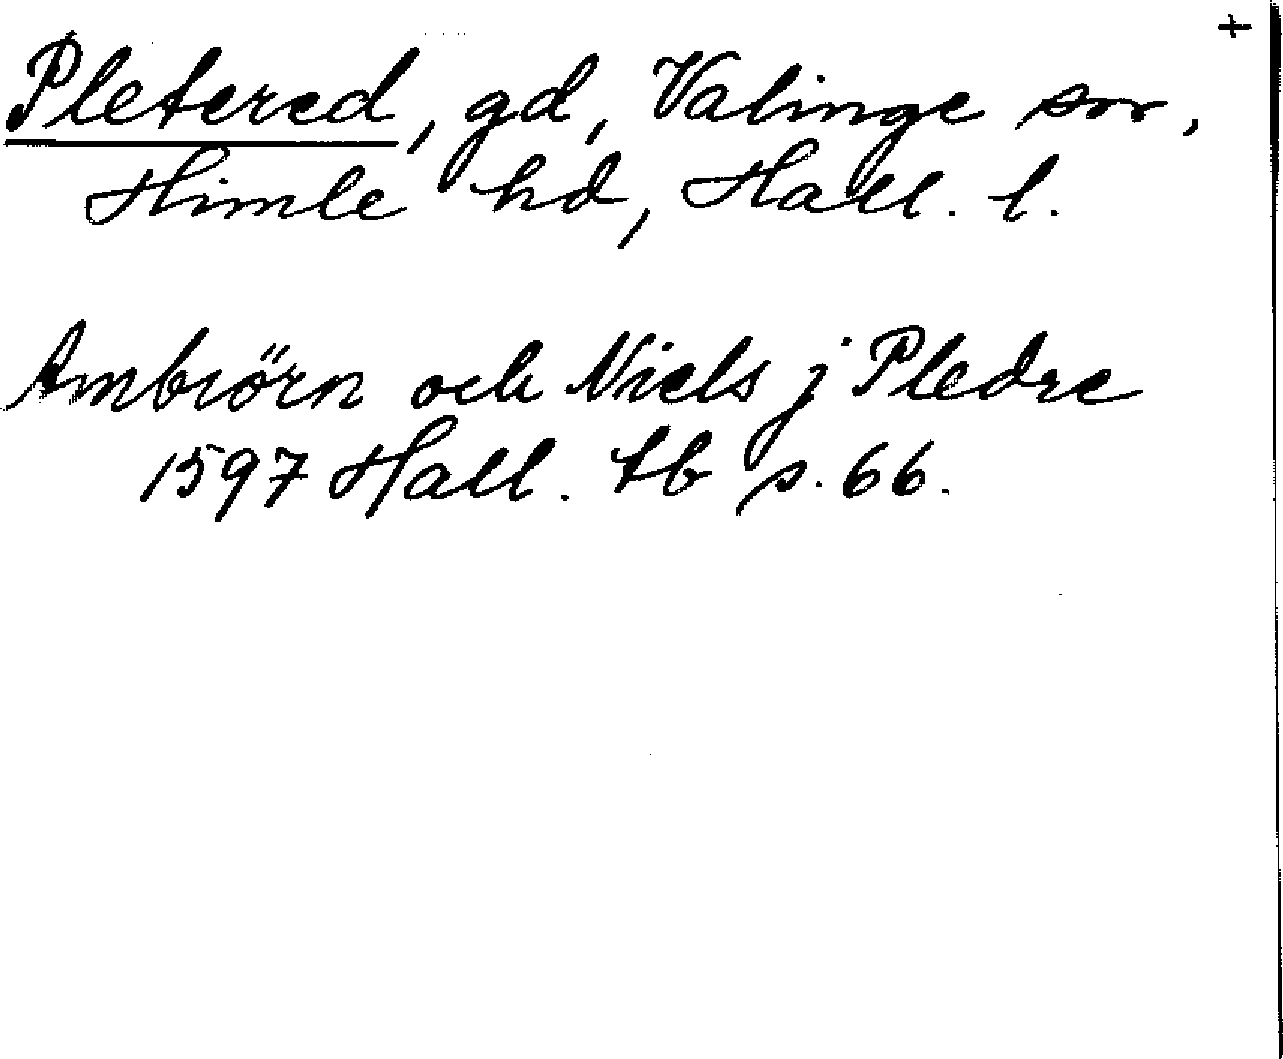 +
Pletered, gd, Valinge sn,
Himle hd, Hall. l.
Ambiörn och Niels j Pledre
1597 Hall. tb s. 66.